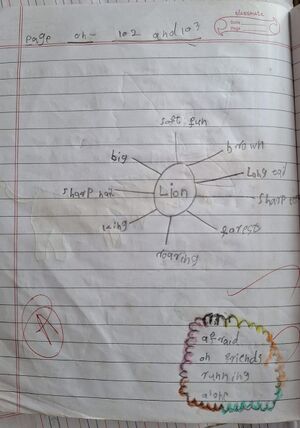 classmate
Date
Page
page on- 102 and 103
soft fun
big
brown
Long tail
Lion
Sharp nail
sharp
king
forest
roaring
A
afraid
on friends
running
alone